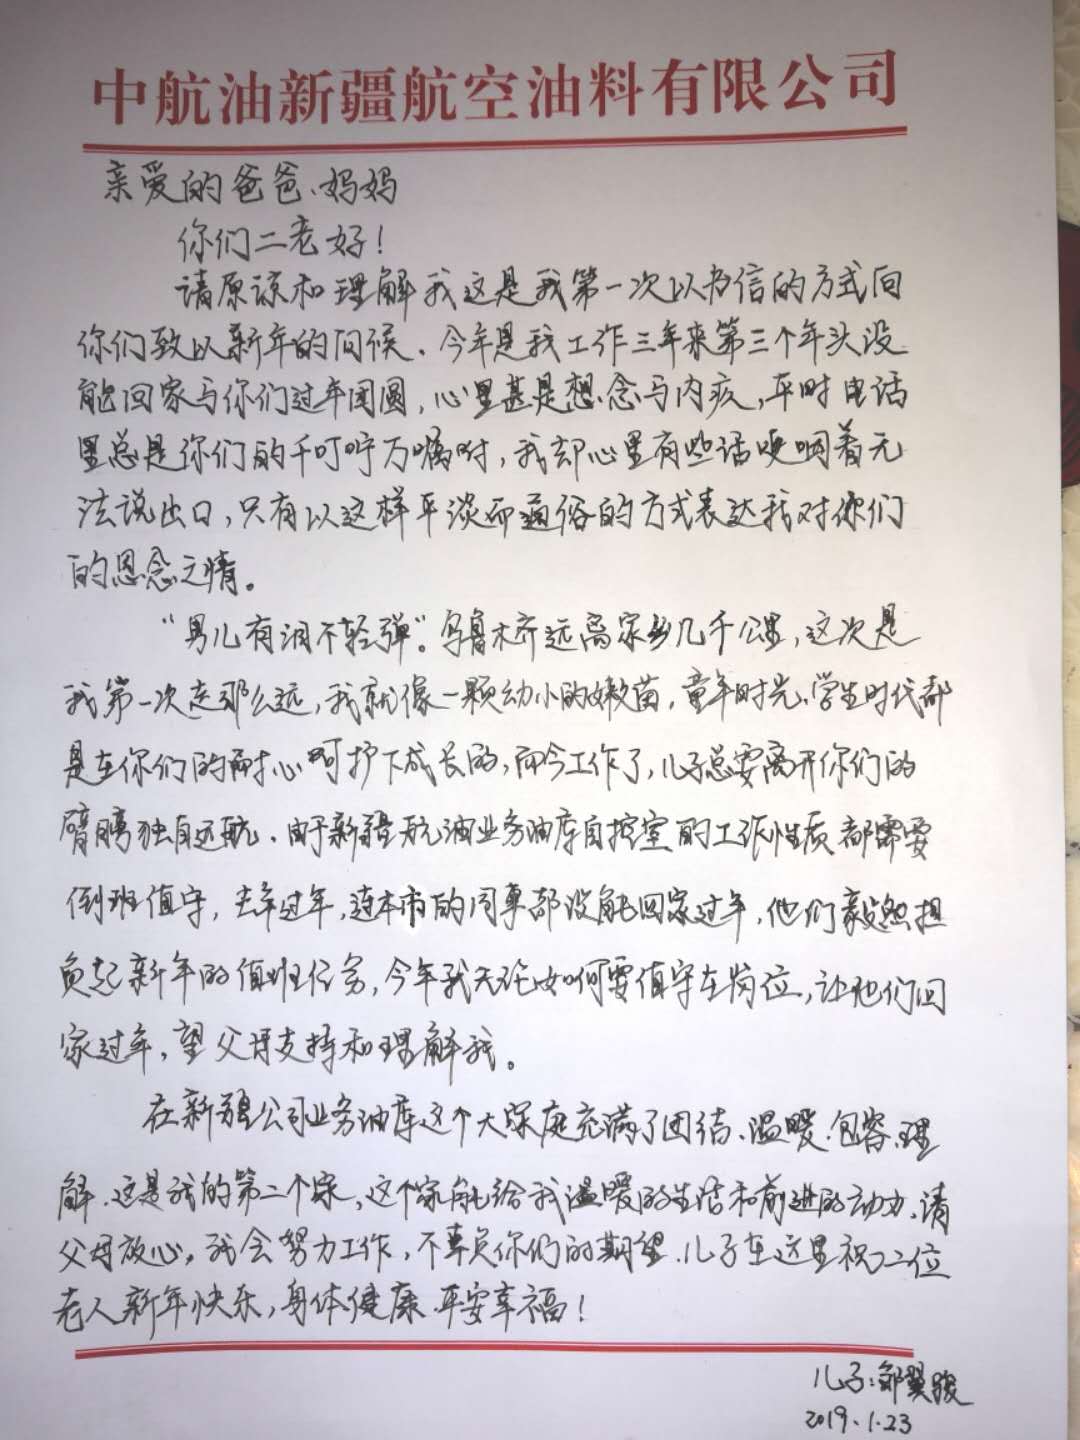 中航油新疆航空油料有限公司
亲爱的爸爸、妈妈
你们二老好！
请原谅和理解我这是我第一次以书信的方式向
你们致以新年的问候．今年是我工作三年来第三个年头没
能回家与你们过年团圆，心里甚是想念与内疚，平时电话
里总是你们的千叮咛万嘱咐，我却心里有些话哽咽着无
法说出口，只有以这样平淡而通俗的方式表达我对你们
的恩念之情。
“男儿有泪不轻弹”。乌鲁木齐远离家乡几千公里，这次是
我第一次走那么远，我就像一颗幼小的嫩苗，童年时光、学生时代都
是在你们的耐心呵护下成长的，而今工作了，儿子总要离开你们的
臂膀独自远航．由于新疆航油业务油库自控室的工作性质都需要
倒班值守，去年过年，连本市的同事都没能回家过年，他们毅然担
负起新年的值班任务，今年我无论如何要值守在岗位，让他们回
家过年，望父母支持和理解我。
在新疆公司业务油库这个大家庭充满了团结、温暖．包容．理
解．这是我的第二个家，这个家能给我温暖的生活和前进的动力．请
父母放心，我会努力工作，不辜负你们的期望．儿子在这里祝二位
老人新年快乐，身体健康．平安幸福！
儿子：邹翼骏
2019.1.23